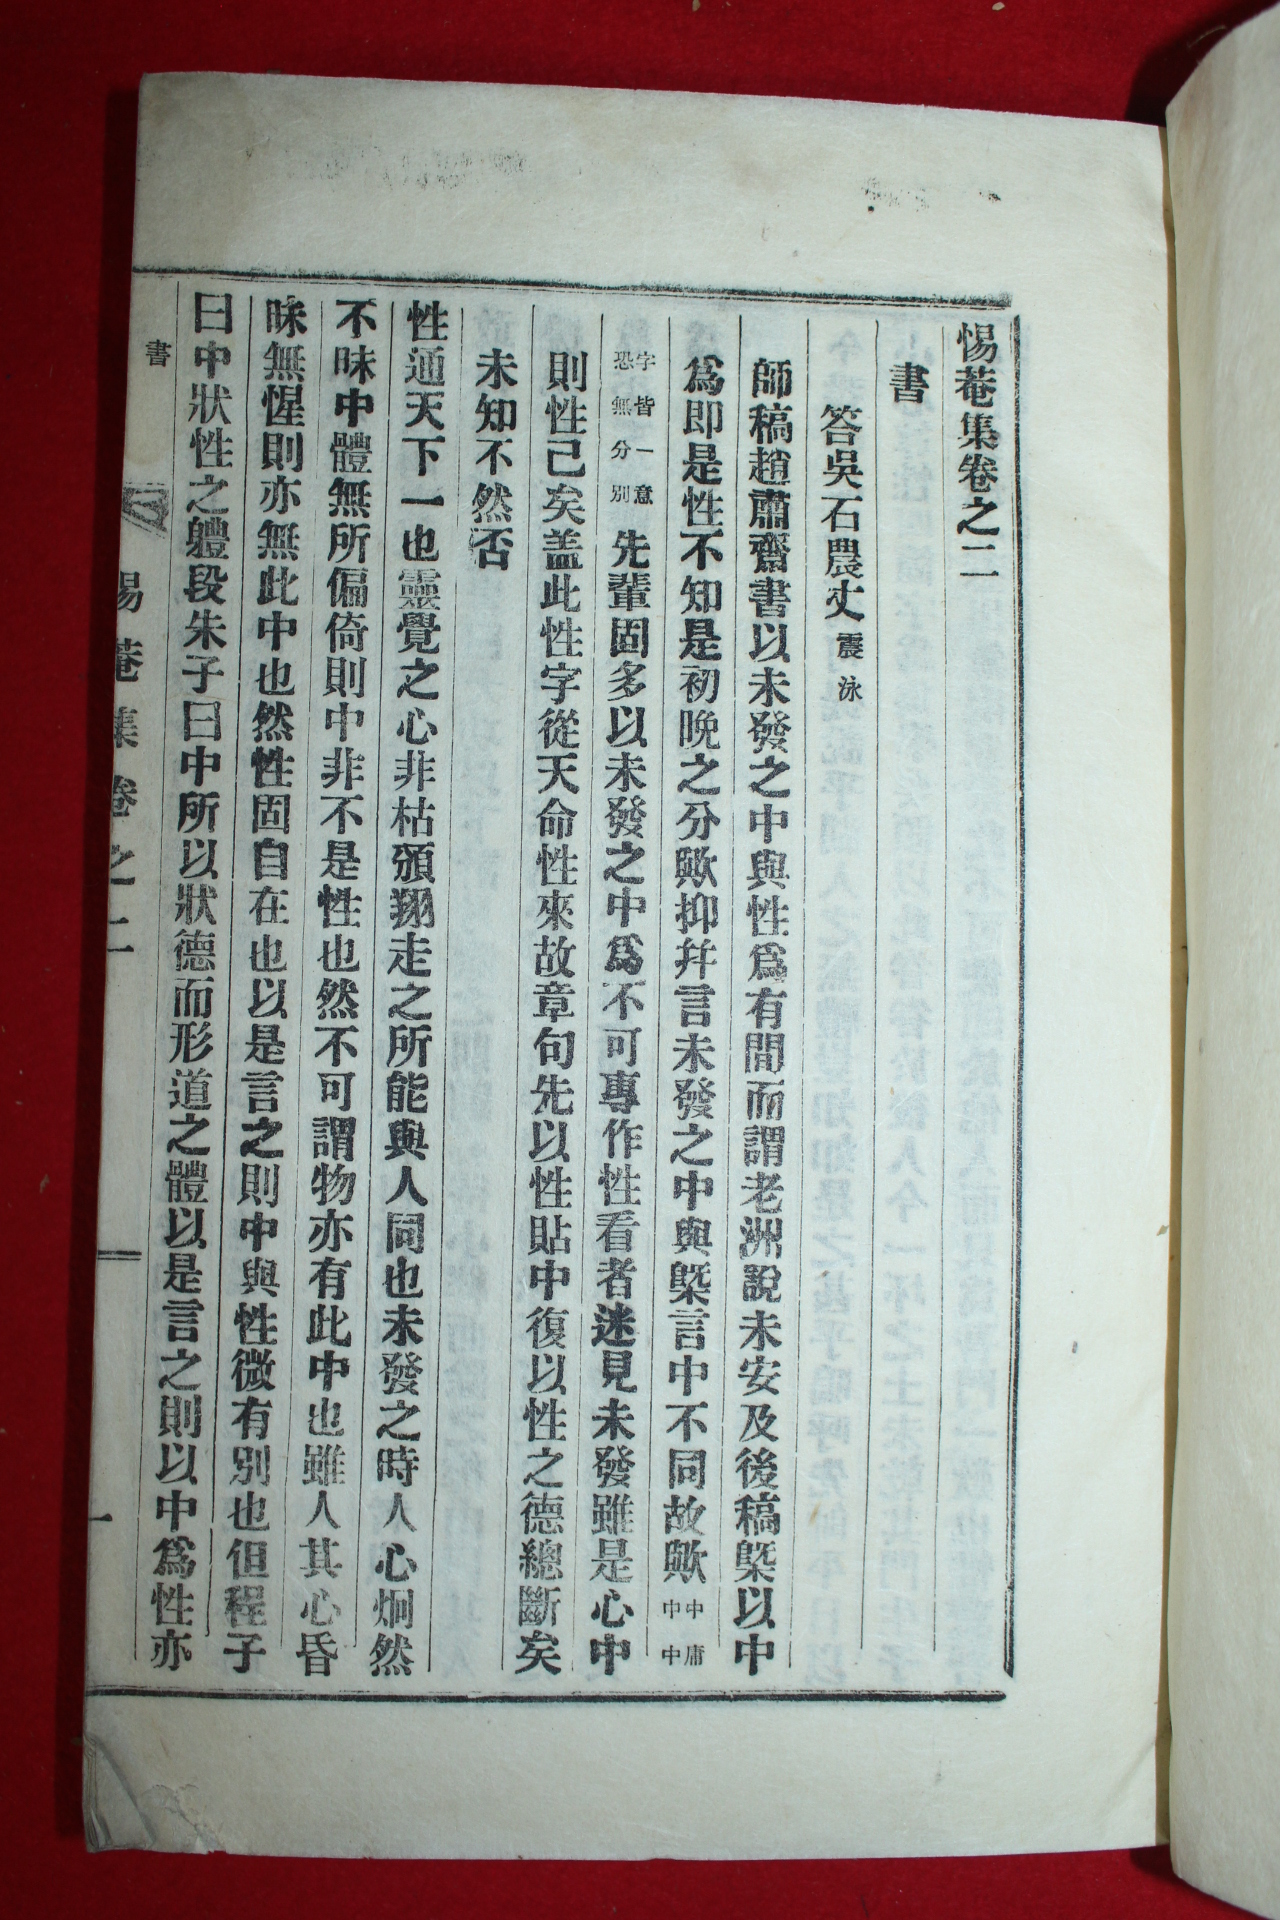 惕菴集卷之二
書
答吳石農丈震泳
師稿趙肅齋書以未發之中與性爲有間而謂老洲說未安及後稿槩以中
爲即是性不知是初晩之分歟抑幷言未發之中與槩言中不同故歟中庸中中
字皆一意恐無分別先輩固多以未發之中爲不可專作性看者迷見未發雖是心中
則性己矣盖此性字從天命性來故章句先以性貼中復以性之德總斷矣
未知不然否
性通天下一也靈覺之心非枯頒翔走之所能與人同也未發之時人心炯然
不昧中體無所偏倚則中非不是性也然不可謂物亦有此中也雖人其心昏
昧無惺則亦無此中也然性固自在也以是言之則中與性微有別也但程子
曰中狀性之軆段朱子曰中所以狀德而形道之體以是言之則以中爲性亦
書
惕菴集卷之二
一